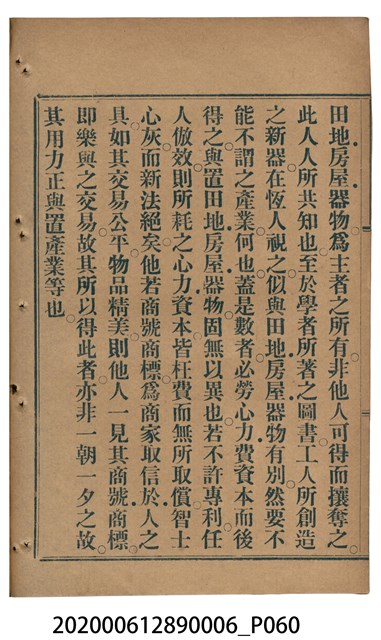 田地房屋器物爲主者之所有非他人可得而攘奪之
此人人所共知也至於學者所著之圖書工人所創造
之新器在恆人視之似與田地房屋器物有別然要不
能不謂之產業何也蓋是數者必勞心力費資本而後
得之與置田地房屋器物固無以異也若不許專利任
人倣效則所耗之心力資本皆枉費而無所取償智士
心灰而新法絕矣他若商號商標爲商家取信於人之
具如其交易公平物品精美則他人一見其商號商標
即樂與之交易故其所以得此者亦非一朝一夕之故
其用力正與置產業等也
202000612890006_P060